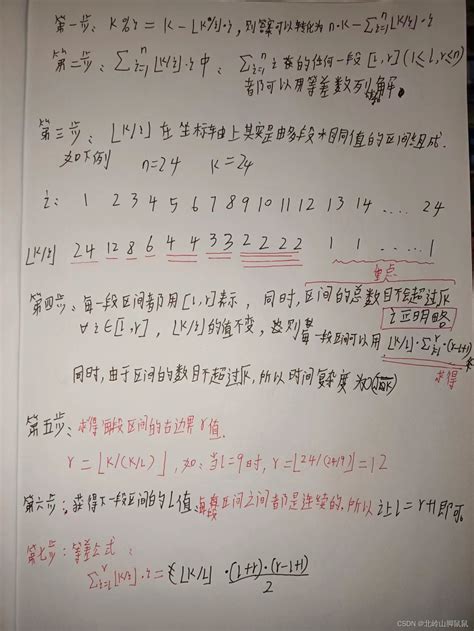 第一步: K%i = K - ⌊K/i⌋·i, 则答案可以转化为 n·K - Σⁿᵢ₌₁⌊K/i⌋·i
第二步: Σⁿᵢ₌₁⌊K/i⌋·i 中, Σⁿᵢ₌₁ i 的任何一段 [l,r] (1≤l,r≤n)
都可以用等差数列求解。
第三步: ⌊K/i⌋ 在坐标轴上其实是由多段相同值的区间组成.
如下例 n=24 K=24
i: 1 2 3 4 5 6 7 8 9 10 11 12 13 14 .... 24
⌊K/i⌋ 24 12 8 6 4 4 3 3 2 2 2 2 1 1 ..... 1
重点
第四步: 每一段区间都用 [l,r] 表示, 同时, 区间的总数目不会超过√K
证明略
∀i∈[l,r], ⌊K/i⌋的值不变, 故每一段区间可以用 ⌊K/L⌋·Σ·(r-l+1)
求得
同时, 由于区间的数目不超过√K, 所以时间复杂度为O(√K)
第五步: 求得每段区间的右边界 r 值.
r = ⌊K/(K/L)⌋, 如: 当l=9时, r=⌊24/(24/9)⌋=12
第六步: 获得下一段区间的L值, 每段区间之间都是连续的, 所以让l=r+1即可.
第七步: 等差公式:
Σʳᵢ₌ₗ⌊K/i⌋·i = ⌊K/L⌋·(l+r)·(r-l+1)/2
CSDN @北岭山脚鼠鼠